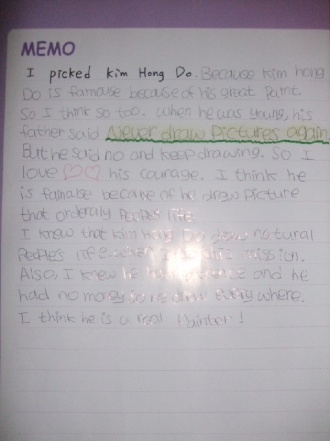 MEMO
I picked kim Hong Do. Because kim hong
Do is famouse because of his great Paint.
So I think so too. when he was young, his
father said Never draw Pictures again
But he said no and keep drawing. So I
love ♡♡ his courage. I think he
is famouse because of he draw Picture
that orderaly Peoples life.
I knew that kim Hong Do natural
PeoPles life when I this mission.
Also, I knew he and he
had no money so he draw every where.
I think he is a real Painter!